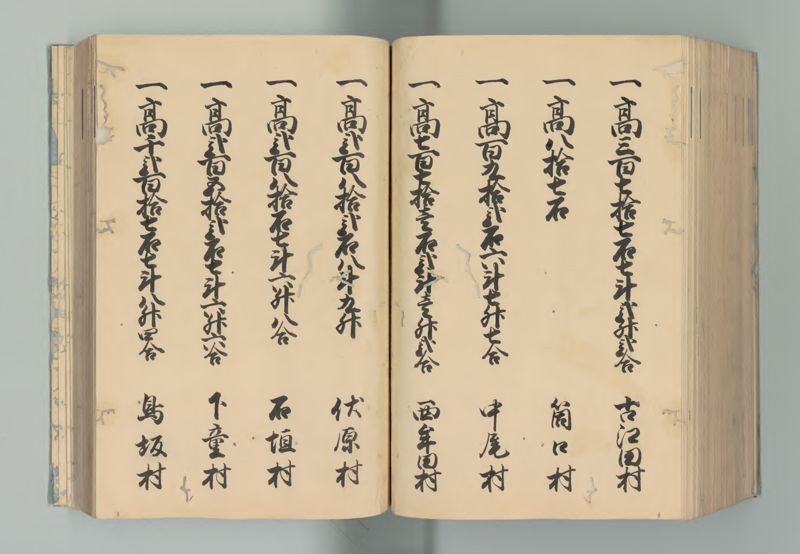 一高三百七拾七石七斗弐升弐合 古江田村
一高八拾七石 筒口村
一高百九拾弐石六斗七升七合 中尾村
一高七百七拾壱石弐斗壱升弐合 西牟田村
一高弐百八拾弐石八斗九升 伏原村
一高弐百八拾石七斗六升八合 石垣村
一高弐百五拾弐石七斗六升六合 下童村
一高千弐百拾七石七斗八升四合 鳥坂村